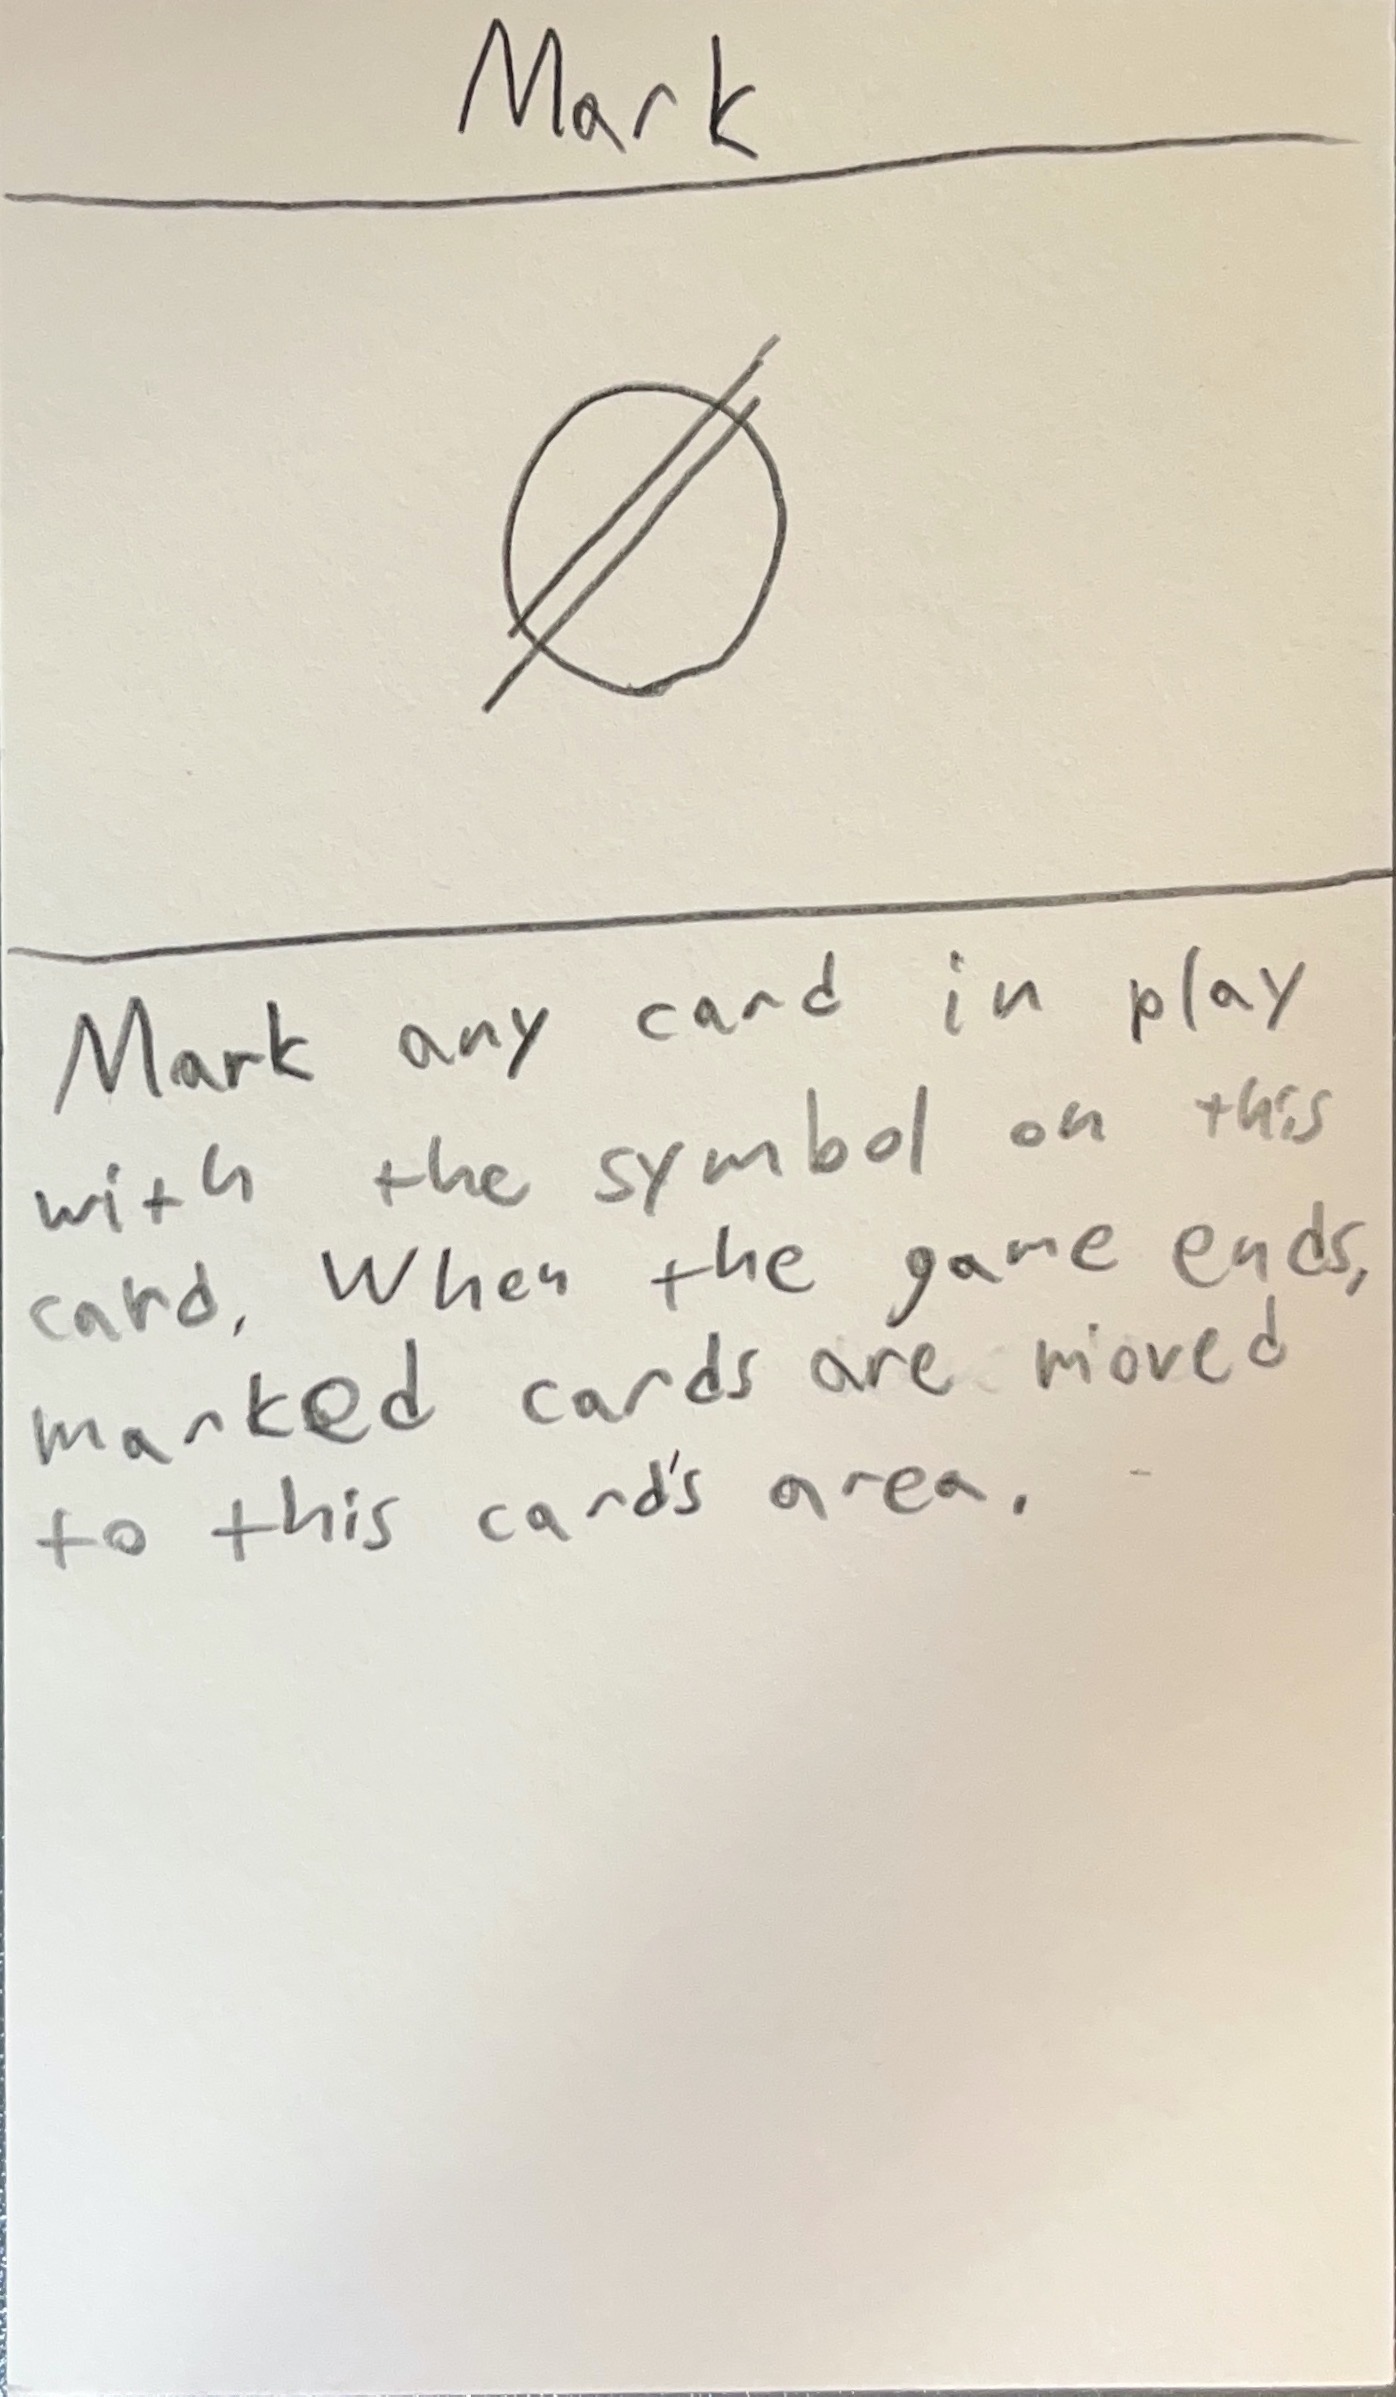 Mark
Mark any card in play
with the symbol on this
card. When the game ends,
marked cards are moved
to this card's area.